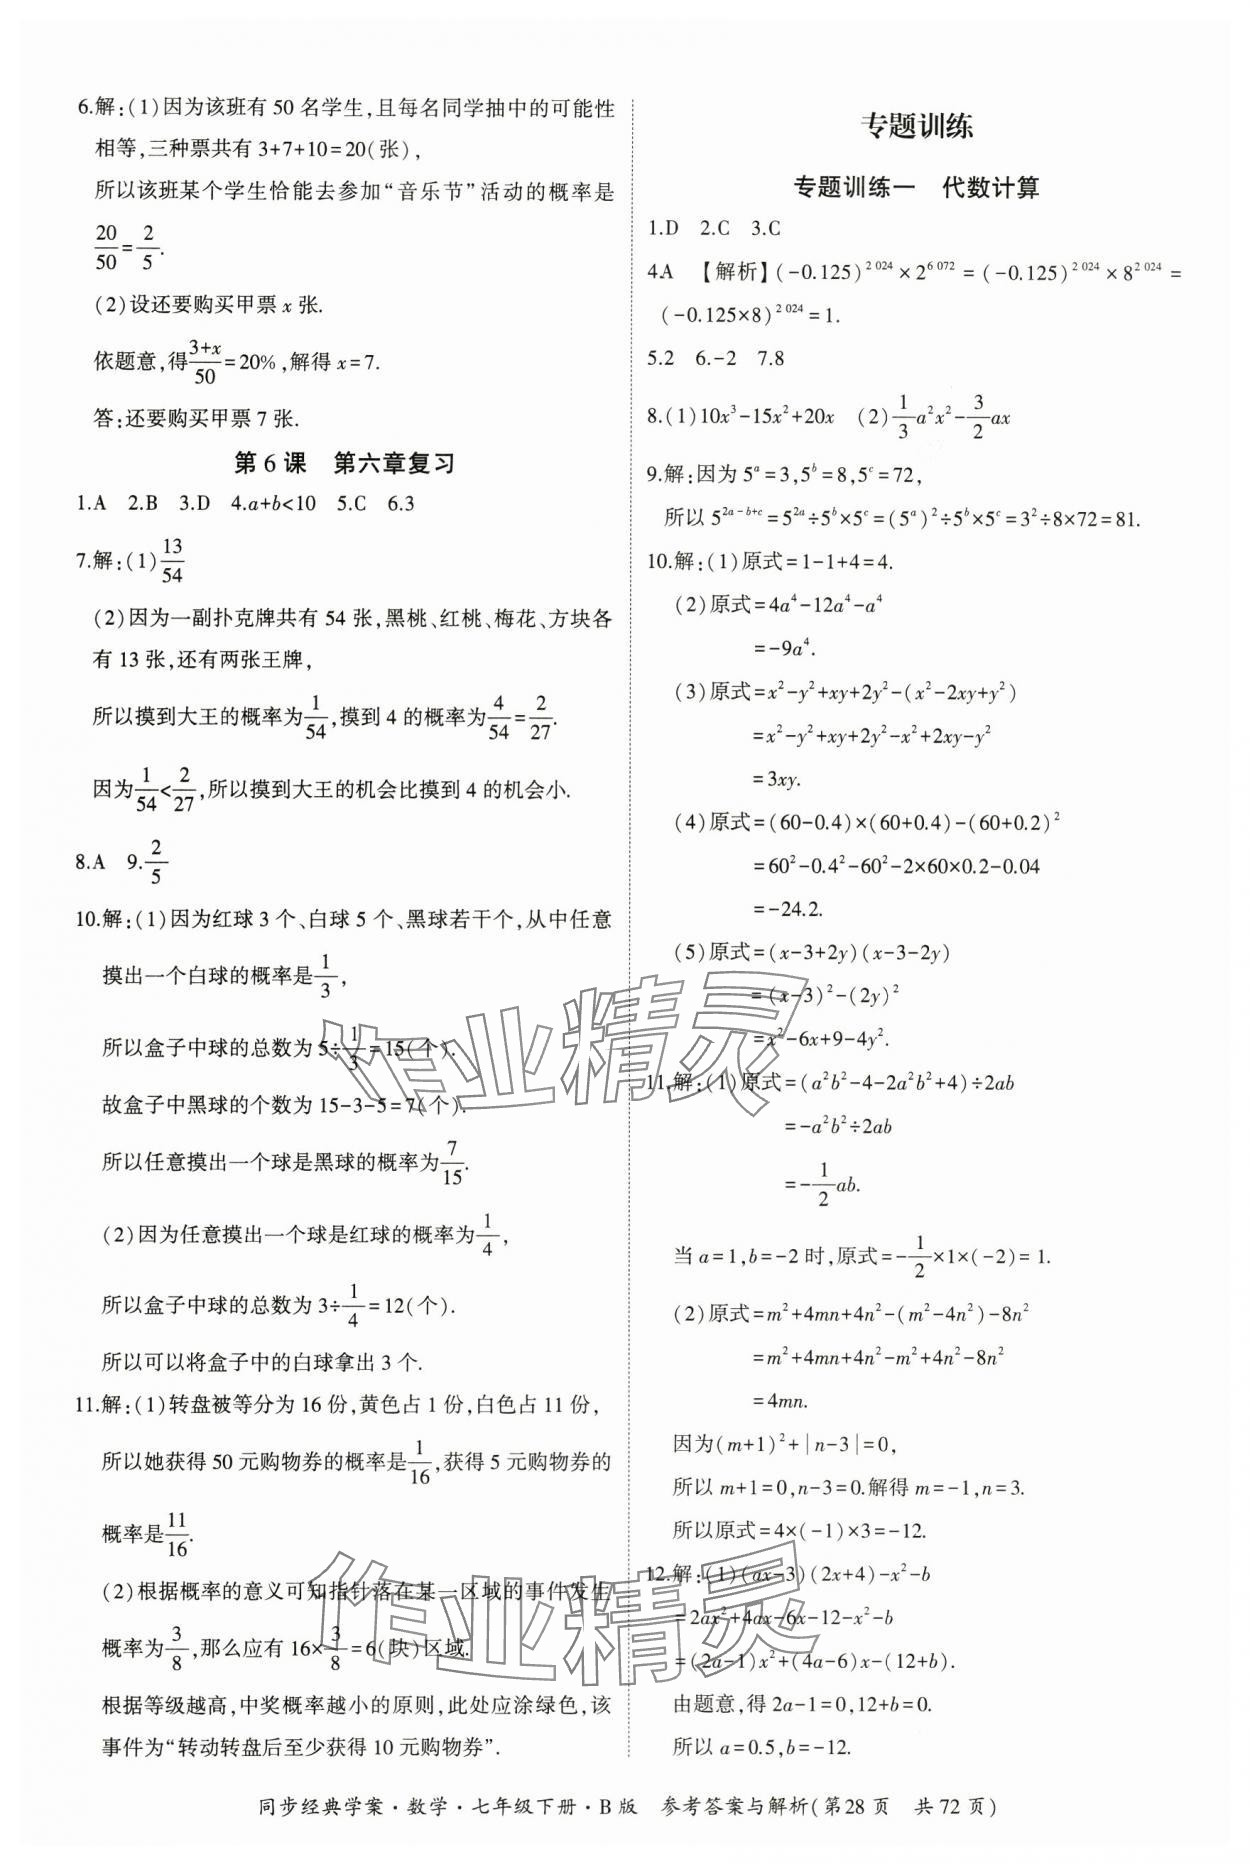 6.解:(1)因为该班有 50 名学生,且每名同学抽中的可能性
相等,三种票共有 3+7+10=20(张),
所以该班某个学生恰能去参加“音乐节”活动的概率是
20/50=2/5.
(2)设还要购买甲票 x 张.
依题意,得(3+x)/50=20%,解得 x=7.
答:还要购买甲票 7 张.
第 6 课 第六章复习
1.A 2.B 3.D 4.a+b<10 5.C 6.3
7.解:(1)13/54
(2)因为一副扑克牌共有 54 张,黑桃、红桃、梅花、方块各
有 13 张,还有两张王牌,
所以摸到大王的概率为1/54,摸到 4 的概率为4/54=2/27.
因为1/54<2/27,所以摸到大王的机会比摸到 4 的机会小.
8.A 9.2/5
10.解:(1)因为红球 3 个、白球 5 个、黑球若干个,从中任意
摸出一个白球的概率是1/3,
所以盒子中球的总数为 5÷1/3=15(个).
故盒子中黑球的个数为 15-3-5=7(个).
所以任意摸出一个球是黑球的概率为7/15.
(2)因为任意摸出一个球是红球的概率为1/4,
所以盒子中球的总数为 3÷1/4=12(个).
所以可以将盒子中的白球拿出 3 个.
11.解:(1)转盘被等分为 16 份,黄色占 1 份,白色占 11 份,
所以她获得 50 元购物券的概率是1/16,获得 5 元购物券的
概率是11/16.
(2)根据概率的意义可知指针落在某一区域的事件发生
概率为3/8,那么应有 16×3/8=6(块)区域.
根据等级越高,中奖概率越小的原则,此处应涂绿色,该
事件为“转动转盘后至少获得 10 元购物券”.
专题训练
专题训练一 代数计算
1.D 2.C 3.C
4.A 【解析】(-0.125)²⁰²⁴×2⁶⁰⁷²=(-0.125)²⁰²⁴×8²⁰²⁴=
(-0.125×8)²⁰²⁴=1.
5.2 6.-2 7.8
8.(1)10x³-15x²+20x (2)1/3a²x²-3/2ax
9.解:因为 5ᵃ=3,5ᵇ=8,5ᶜ=72,
所以 5²ᵃ⁻ᵇ⁺ᶜ=5²ᵃ÷5ᵇ×5ᶜ=(5ᵃ)²÷5ᵇ×5ᶜ=3²÷8×72=81.
10.解:(1)原式=1-1+4=4.
(2)原式=4a⁴-12a⁴-a⁴
=-9a⁴.
(3)原式=x²-y²+xy+2y²-(x²-2xy+y²)
=x²-y²+xy+2y²-x²+2xy-y²
=3xy.
(4)原式=(60-0.4)×(60+0.4)-(60+0.2)²
=60²-0.4²-60²-2×60×0.2-0.04
=-24.2.
(5)原式=(x-3+2y)(x-3-2y)
=(x-3)²-(2y)²
=x²-6x+9-4y².
11.解:(1)原式=(a²b²-4-2a²b²+4)÷2ab
=-a²b²÷2ab
=-1/2ab.
当 a=1,b=-2 时,原式=-1/2×1×(-2)=1.
(2)原式=m²+4mn+4n²-(m²-4n²)-8n²
=m²+4mn+4n²-m²+4n²-8n²
=4mn.
因为(m+1)²+|n-3|=0,
所以 m+1=0,n-3=0.解得 m=-1,n=3.
所以原式=4×(-1)×3=-12.
12.解:(1)(ax-3)(2x+4)-x²-b
=2ax²+4ax-6x-12-x²-b
=(2a-1)x²+(4a-6)x-(12+b).
由题意,得 2a-1=0,12+b=0.
所以 a=0.5,b=-12.
作业精灵
作业精灵
同步经典学案·数学·七年级下册·B版 参考答案与解析(第28页 共72页)